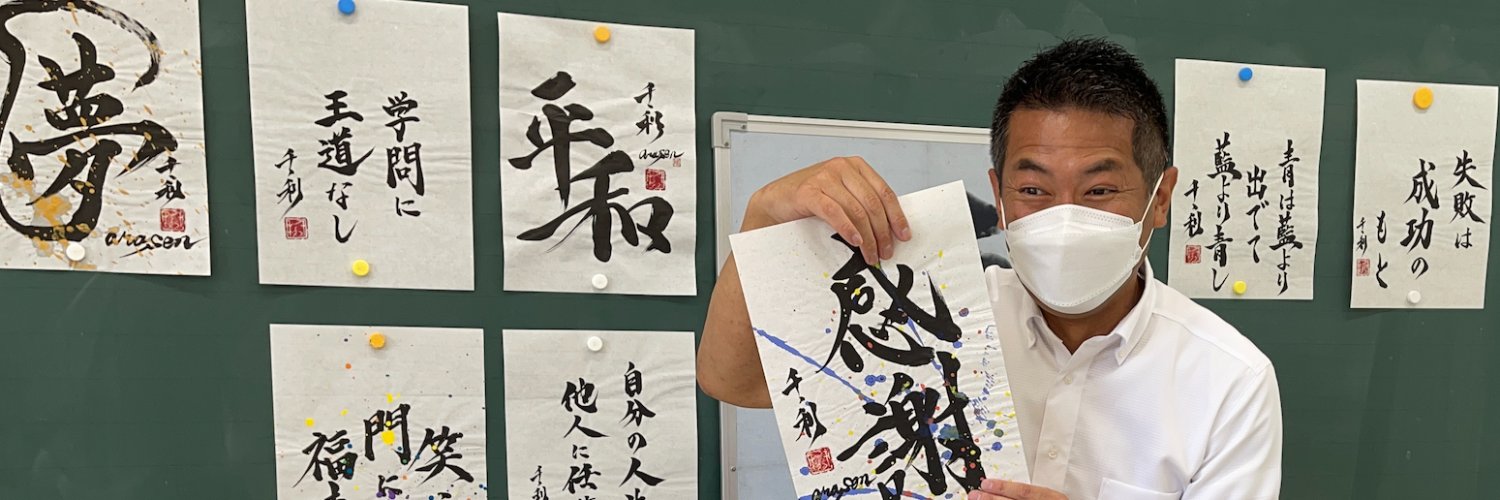 夢
千彩
arasen
学問に
王道なし
千彩
平和
千彩
arasen
感謝
千彩
arasen
青は藍より
出でて
藍より青し
千彩
失敗は
成功の
もと
千彩
笑
門に
福
自分の人
他人に任
千彩